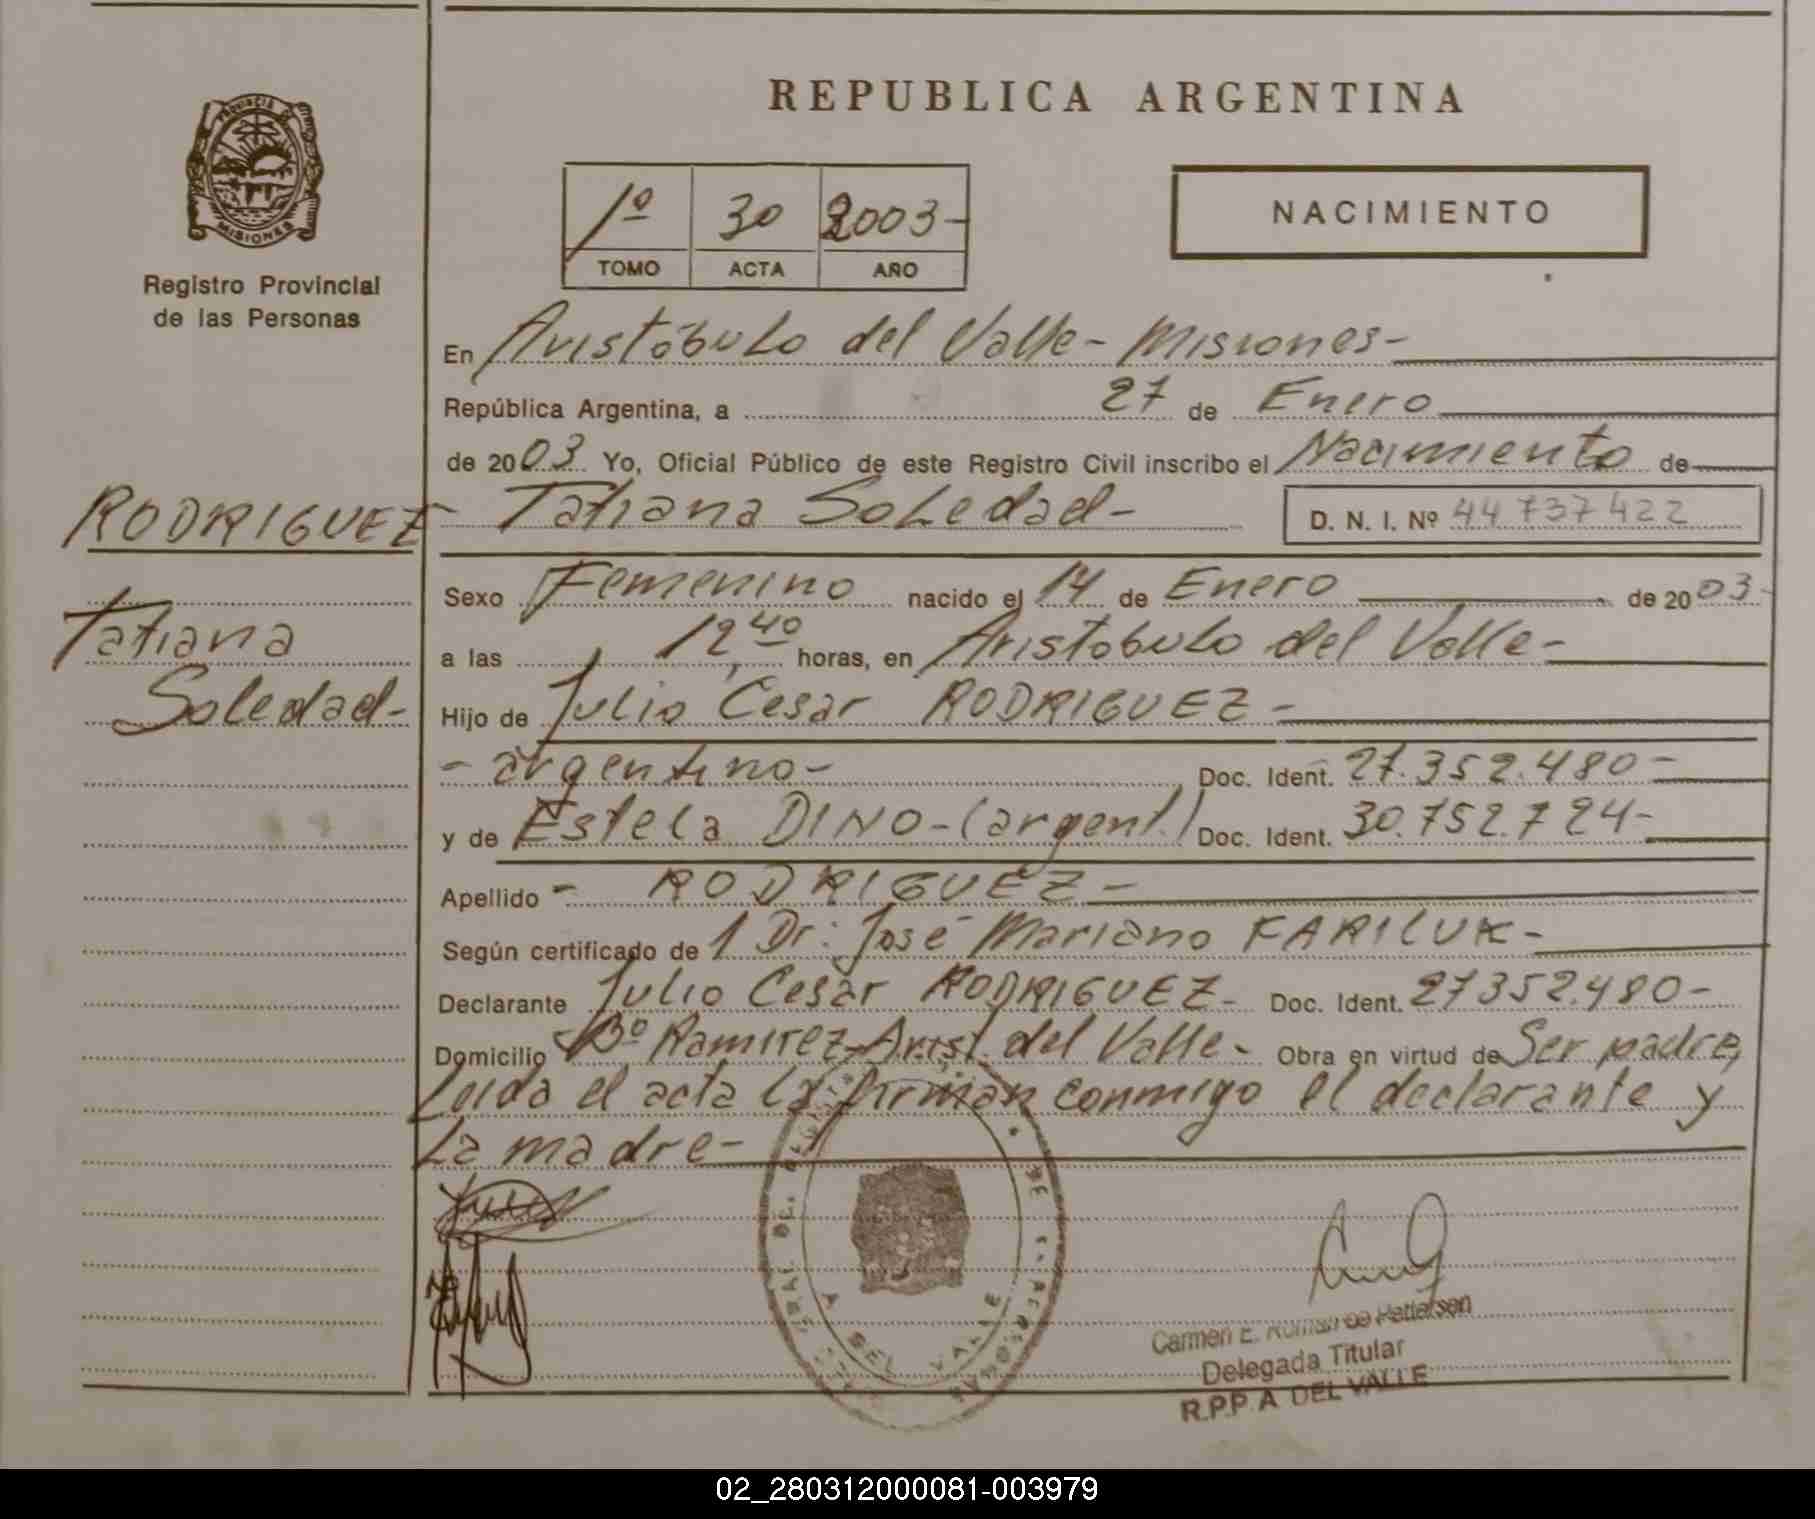 REPUBLICA ARGENTINA
PROVINCIA DE
MISIONES
Registro Provincial
de las Personas
1º 30 2003-
TOMO ACTA AÑO
NACIMIENTO
En Aristóbulo del Valle - Misiones-
República Argentina, a 27 de Enero
de 2003 Yo, Oficial Público de este Registro Civil inscribo el Nacimiento de
RODRIGUEZ - Tatiana Soledad-
D. N. I. Nº 44 737 422
Sexo Femenino nacido el 14 de Enero de 2003-
Tatiana
Soledad-
a las 12,40 horas, en Aristobulo del Valle-
Hijo de Julio Cesar RODRIGUEZ -
- argentino- Doc. Ident. 27.352.480-
y de Estela DINO-(argent.) Doc. Ident. 30.752.724-
Apellido - RODRIGUEZ-
Según certificado de 1 Dr: José Mariano FARILUK-
Declarante Julio Cesar RODRIGUEZ- Doc. Ident. 27352.480-
Domicilio Bº Ramirez-Arist. del Valle- Obra en virtud de Ser padre,
Leida el acta la firman conmigo el declarante y
La madre-
A DEL VALLE
Carmen E. Roman de Pettersen
Delegada Titular
R.P.P. A DEL VALLE
02_280312000081-003979